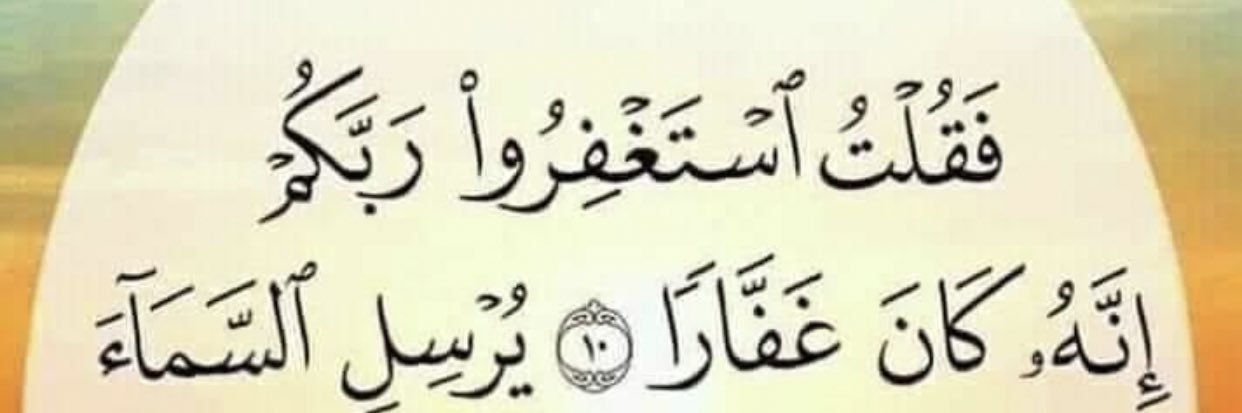 فَقُلْتُ ٱسْتَغْفِرُوا۟ رَبَّكُمْ
إِنَّهُۥ كَانَ غَفَّارًا ١٠ يُرْسِلِ ٱلسَّمَآءَ